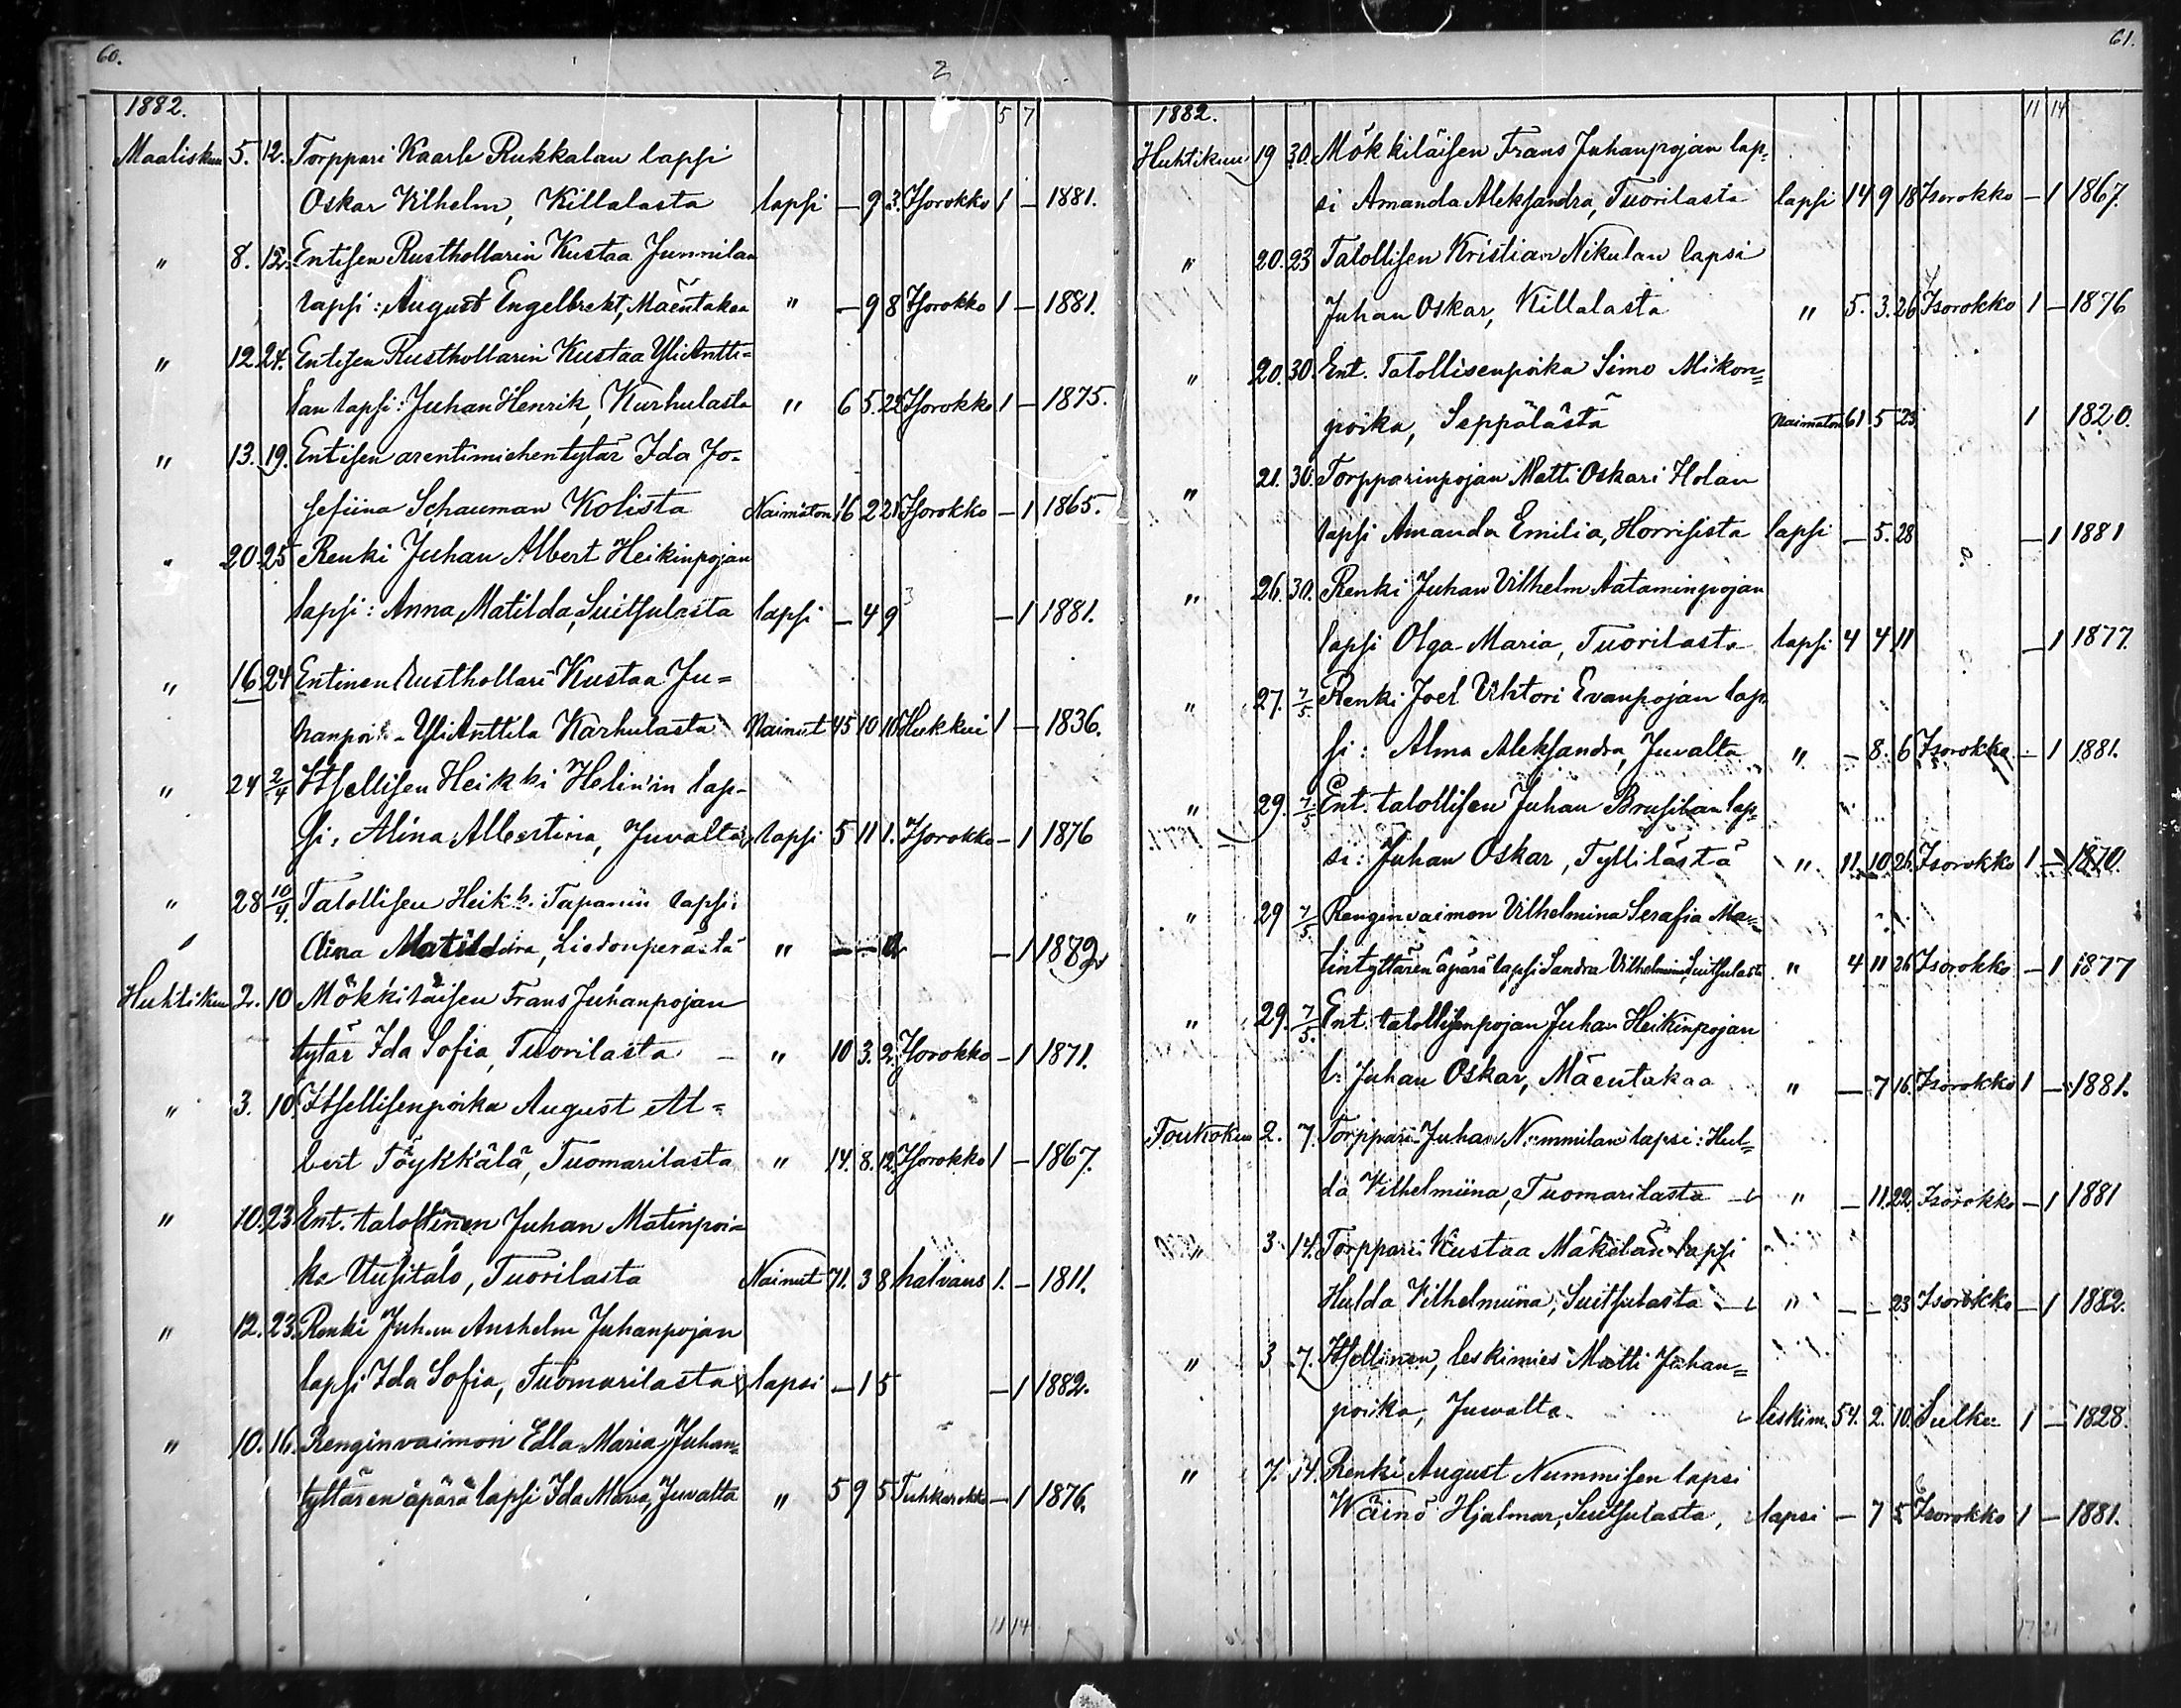 60.
2
1882. 5 7
Maaliskuu 5. 12. Torppari Kaarle Rukkalan lapsi
Oskar Vilhelm, Killalasta lapsi — 9 3. Isorokko 1 — 1881.
" 8. 12. Entisen Rusthollarin Kustaa Junnilan
lapsi: August Engelbrekt, Mäentakaa " — 9 8 Isorokko 1 — 1881.
" 12. 24. Entisen Rusthollarin Kustaa YliAntti=
lan lapsi: Juhan Henrik, Kurhulasta " 6 5. 22 Isorokko 1 — 1875.
" 13. 19. Entisen arentimiehentytär Ida Jo-
sefiina Schauman Kolista Naimaton 16 2 21 Isorokko — 1 1865.
" 20. 25 Renki Juhan Albert Heikinpojan
lapsi: Anna Matilda, Suitsulasta lapsi — 4 9 — 1 1881.
" 16 24 Entinen Rusthollari Kustaa Ju=
hanpoika YliAnttila Karhulasta Nainut 45 10 10 Hukkui 1 — 1836.
" 24 2/4 Itsellisen Heikki Helin'in lap-
si, Alina Albertina, Juvalta lapsi 5 11 1. Isorokko — 1 1876
" 28 10/4. Talollisen Heikki Tapanin lapsi:
Aina Matilda, Liedonperästä " — — — 1 1882
Huhtikuu 2. 10 Mökkiläisen Frans Juhanpojan
tytär Ida Sofia, Tuorilasta — " 10 3. 2. Isorokko — 1 1871.
" 3. 10 Itsellisenpoika August Al=
bert Töykkälä, Tuomarilasta " 14. 8. 12. Isorokko 1 — 1867.
" 10. 23 Ent. talollinen Juhan Matinpoi=
ka Uusitalo, Tuorilasta Nainut 71. 3 8 halvaus 1. — 1811.
" 12. 23. Renki Juhan Anshelm Juhanpojan
lapsi Ida Sofia, Tuomarilasta lapsi — 1 5 — 1 1882.
" 10. 16. Renginvaimon Edla Maria Juhan=
tyttären äpärä lapsi Ida Maria, Juvalta " 5 9 5 Tuhkarokko — 1 1876.
11 14
61.
1882. 11 14
Huhtikuu 19 30. Mökkiläisen Frans Juhanpojan lap=
si Amanda Aleksandra, Tuorilasta lapsi 14 9 18 Isorokko — 1 1867.
" 20. 23 Talollisen Kristian Nikulan lapsi
Juhan Oskar, Killalasta " 5. 3. 26 Isorokko 1 — 1876
" 20. 30. Ent. Talollisenpoika Simo Mikon=
poika, Seppälästä Naimaton 61 5 23 1 1820.
" 21. 30. Torpparinpojan Matti Oskari Holan
lapsi Amanda Emilia, Horrisista lapsi — 5. 28 — 1 1881
" 26. 30. Renki Juhan Vilhelm Aataminpojan
lapsi Olga Maria, Tuorilasta lapsi 4 4 11 — 1 1877.
" 27. 7/5. Renki Joel Viktori Evanpojan lap-
si: Alma Aleksandra, Juvalta " — 8. 6 Isorokko — 1 1881.
" 29. 7/5 Ent. talollisen Juhan Brusilan lap=
si: Juhan Oskar, Tyllilästä " 11. 10. 26. Isorokko 1 — 1870.
" 29 7/5 Renginvaimon Vilhelmina Serafia Ma=
tintyttären äpärä lapsi Sandra Vilhelmina, Suitsulasta " 4 11 26 Isorokko — 1 1877
" 29. 7/5. Ent. talollisenpojan Juhan Heikinpojan
l: Juhan Oskar, Mäentakaa " — 7 16. Isorokko 1 — 1881.
Toukokuu 2. 7. Torppari Juhan Nummilan lapsi: Hul=
da Vilhelmiina, Tuomarilasta " — 11. 22. Isorokko — 1 1881
" 3 14. Torppari Kustaa Mäkelän lapsi
Hulda Vilhelmiina, Suitsulasta " — — 23 Isorokko — 1 1882.
" 3 7. Itsellinen, leskimies Matti Juhan=
poika, Juvalta leskim. 54. 2. 10. 1 — 1828.
" 7. 14. Renki August Nummisen lapsi
Wäinö Hjalmar, Suitsulasta, lapsi — 7 5 Isorokko 1 — 1881.
17 21